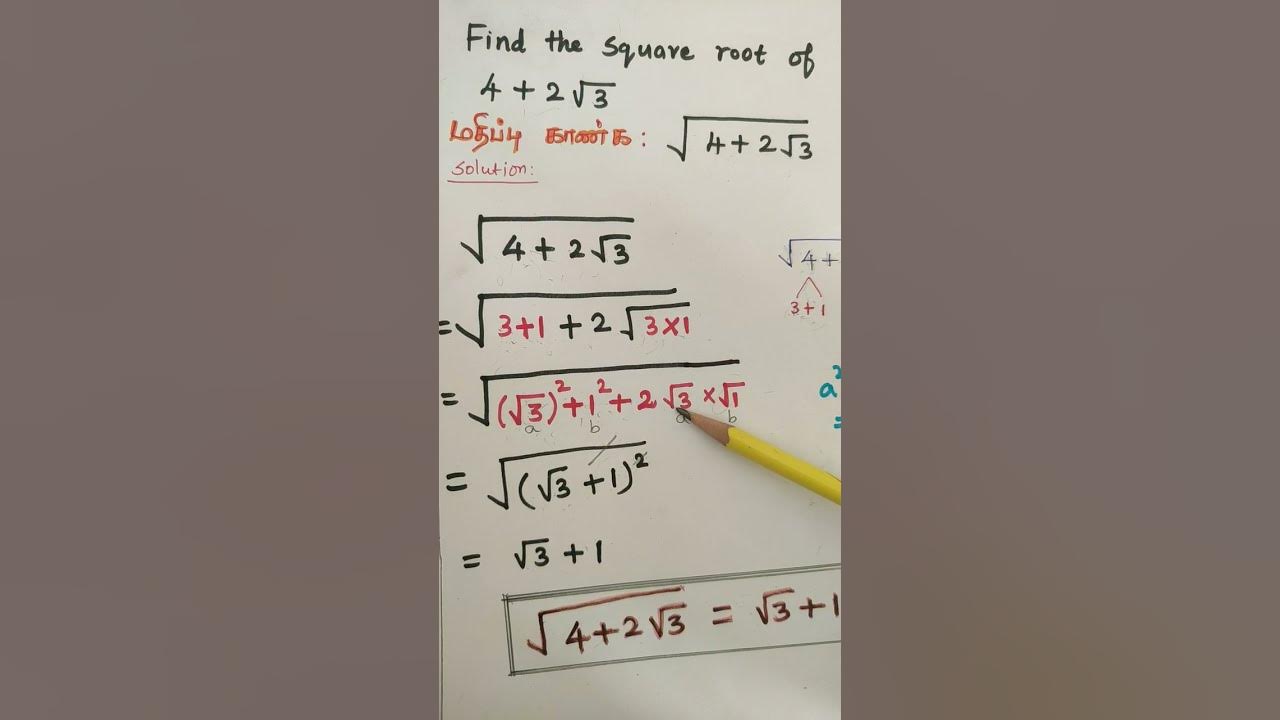 Find the square root of
4 + 2√3
மதிப்பு காண்க : √(4 + 2√3)
Solution:
√(4 + 2√3)
= √(3+1 + 2√(3×1))
= √((√3)² + 1² + 2√3 × √1)
a b a b
= √((√3 + 1)²)
= √3 + 1
√(4 + 2√3) = √3 + 1
√4+
3+1
a²
=